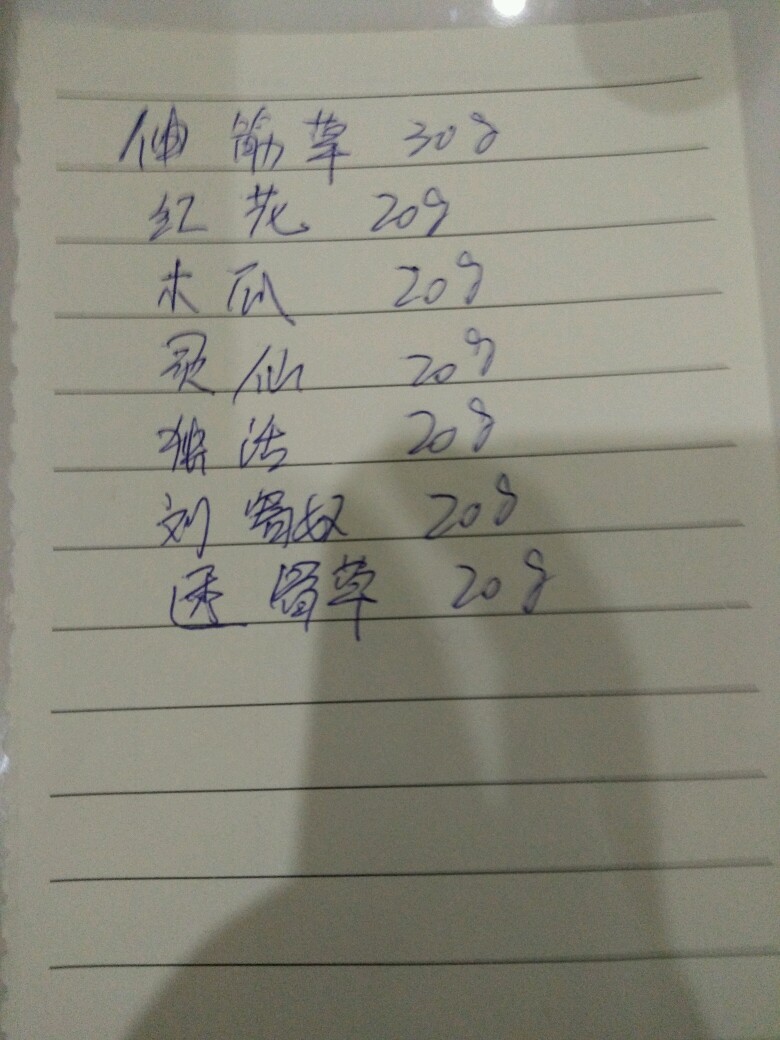 伸筋草 30g
红花 20g
木瓜 20g
灵仙 20g
独活 20g
刘寄奴 20g
透骨草 20g